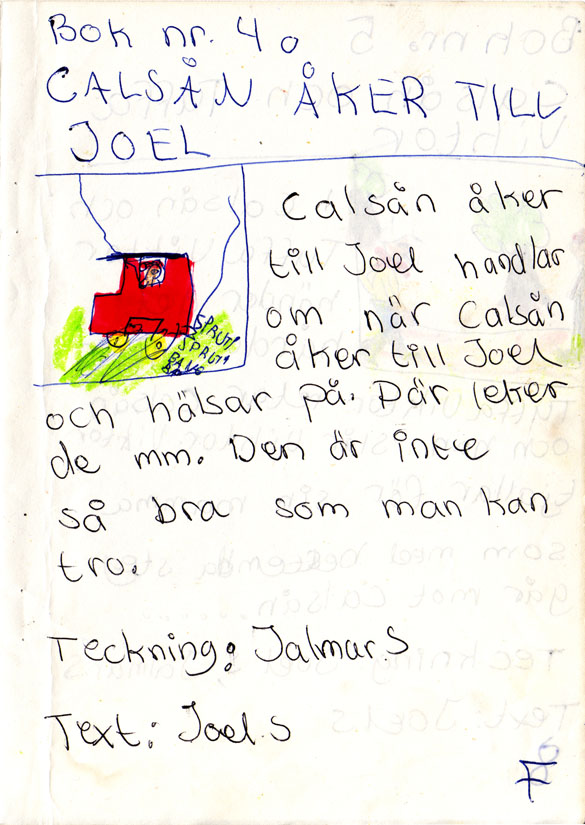 Bok nr. 4.
CALSÅN ÅKER TILL
JOEL
Calsån åker
till Joel handlar
om när Calsån
åker till Joel
och hälsar på. Där leker
de mm. Den är inte
så bra som man kan
tro.
SPRUT!
SPRUT!
Teckning: Jalmar.S
Text: Joel.S
F